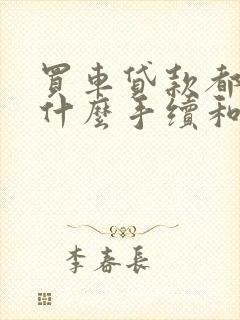 買車貸款都
什麼手續和
李春長